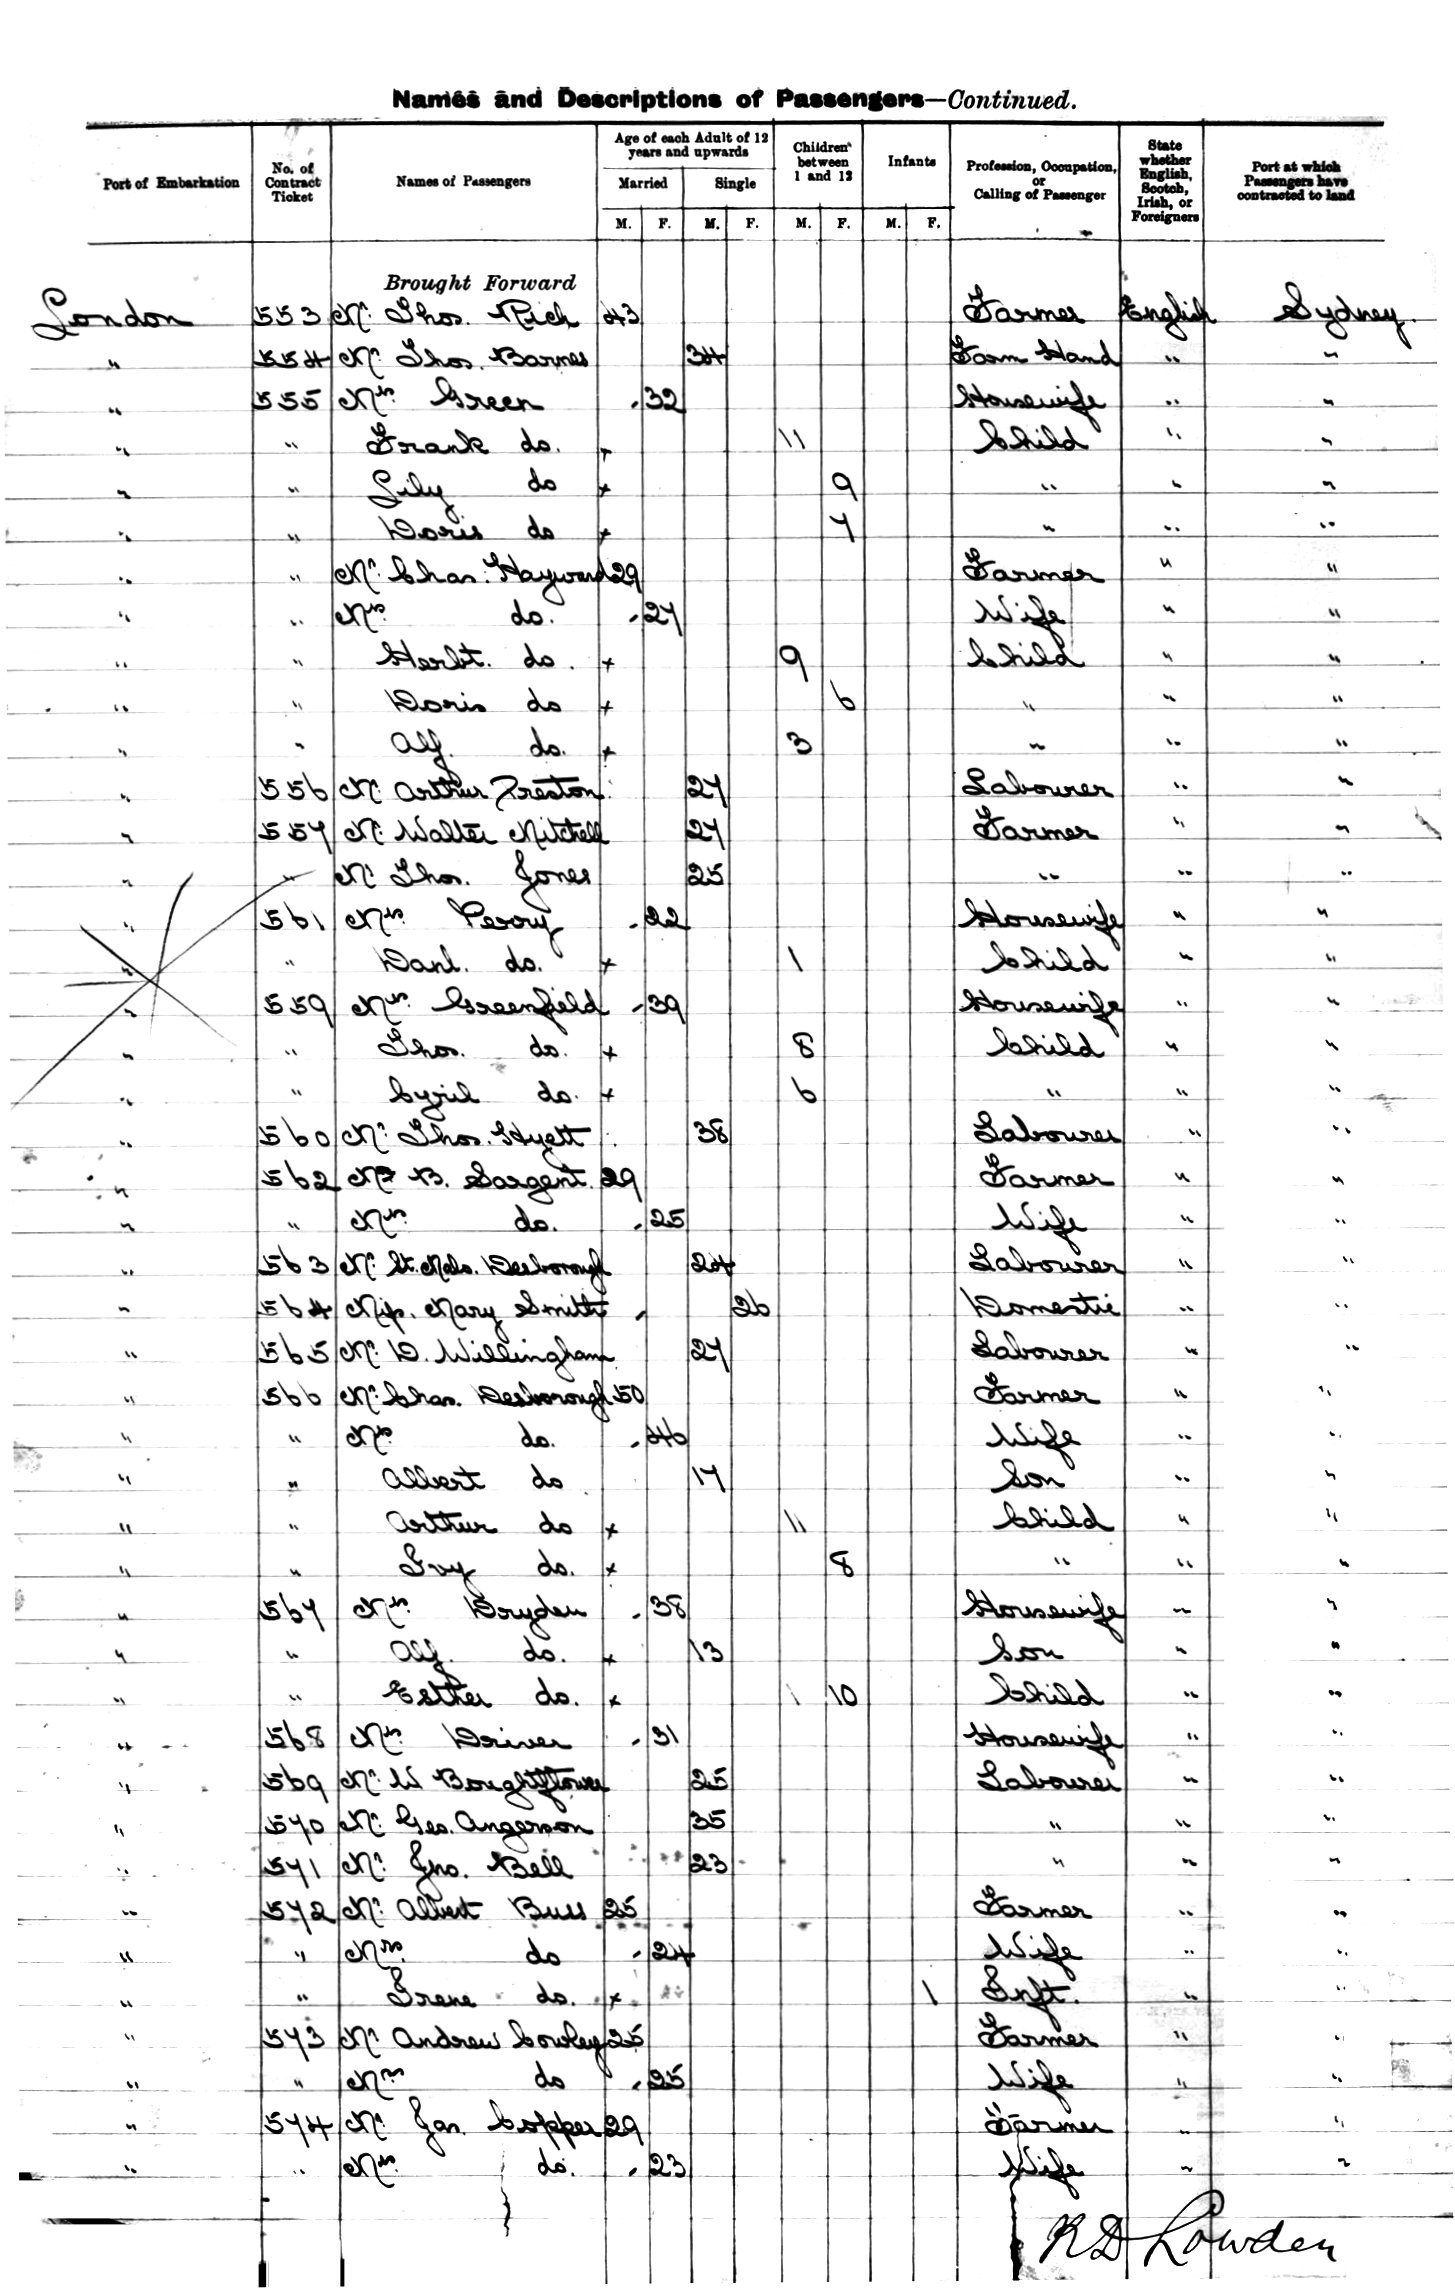 Names and Descriptions of Passengers—Continued.
Port of Embarkation No. of Contract Ticket Names of Passengers Age of each Adult of 12 years and upwards Children between 1 and 12 Infants Profession, Occupation, or Calling of Passenger State whether English, Scotch, Irish, or Foreigners Port at which Passengers have contracted to land
Married Single
M. F. M. F. M. F. M. F.
Brought Forward
London 553 Mr. Thos. Rich 43 Farmer English Sydney.
" 554 Mr. Thos. Barnes 34 Farm Hand " "
" 555 Mrs. Green 32 Housewife " "
" " Frank do. x 11 Child " "
" " Lily do x 9 " " "
" " Doris do x 7 " " "
" " Mr. Chas. Hayward 29 Farmer " "
" " Mrs. do. 27 Wife " "
" " Herbt. do. x 9 Child " "
" " Doris do x 6 " " "
" " Alf. do. x 3 " " "
" 556 Mr. Arthur Preston 27 Labourer " "
" 557 Mr. Walter Mitchell 27 Farmer " "
" " Mr. Thos. Jones 25 " " "
" 561 Mrs. Perry 22 Housewife " "
" " Danl. do. x 1 Child " "
" 559 Mrs. Greenfield 39 Housewife " "
" " Thos. do. x 8 Child " "
" " Cyril do. x 6 " " "
" 560 Mr. Thos. Hyett 38 Labourer " "
" 562 Mr B. Sargent 29 Farmer " "
" " Mrs. do. 25 Wife " "
" 563 Mr. Desborough 24 Labourer " "
" 564 Miss. Mary Smith 26 Domestic " "
" 565 Mr. D. Willingham 27 Labourer " "
" 566 Mr. Chas. Desborough 50 Farmer " "
" " Mrs do. 46 Wife " "
" " Albert do 17 Son " "
" " Arthur do x 11 Child " "
" " Ivy do. x 8 " " "
" 567 Mrs. Bryden 38 Housewife " "
" " Alf. do. x 13 Son " "
" " Esther do. x 10 Child " "
" 568 Mrs. Driver 31 Housewife " "
" 569 Mr. W 25 Labourer " "
" 570 Mr. Geo. Angerson 35 " " "
" 571 Mr. Jno. Bell 23 " " "
" 572 Mr. Albert Buss 25 Farmer " "
" " Mrs. do 24 Wife " "
" " Irene do. x 1 Inft. " "
" 573 Mr. Andrew Cowley 25 Farmer " "
" " Mrs do 25 Wife " "
" 574 Mr. Jas. Copper 29 Farmer " "
" " Mrs. do. 23 Wife " "
RD Lowden